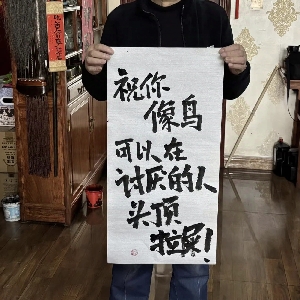 祝你
像鸟
可以在
讨厌的人
头顶
拉屎！